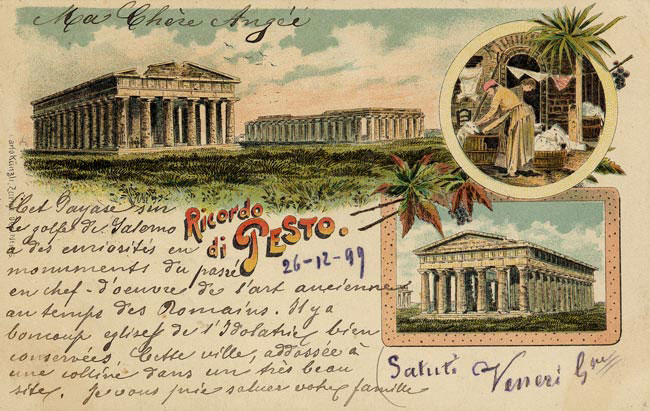 Ma Chère Angèé
Ricordo
di PESTO.
26-12-99
Cet Payase sur
le golfe de Salerno
a des curiosités en
monuments du passé
en chef-d'oeuvre de l'art ancienne
au temps des Romains. Il y a
boucoup eglises de l'Idolatrie bien
conservées. Cette ville, addossée à
une colline dans un très beau
site. Je vous prie saluer votre famille
Saluti Veneri